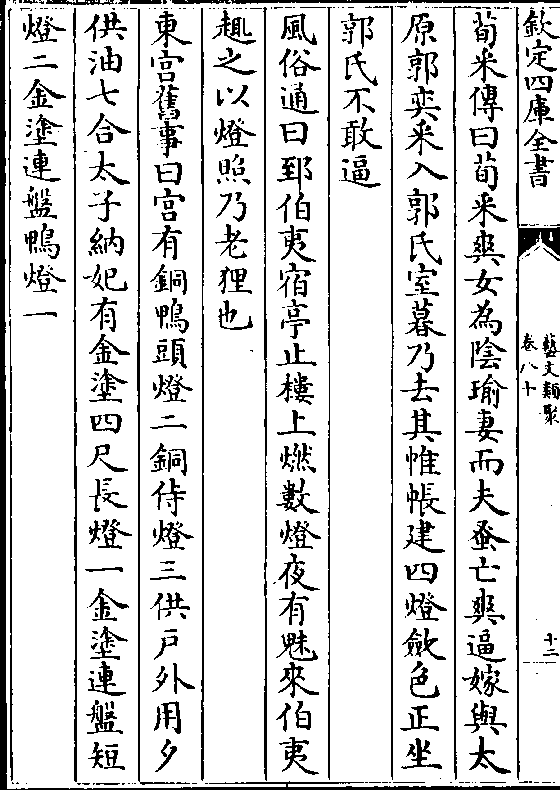 欽定四庫全書
藝文類聚
卷八十
十二
荀采傳曰荀采爽女為陰瑜妻而夫蚤亡爽逼嫁與太
原郭奕采入郭氏室暮乃去其帷帳建四燈斂色正坐
郭氏不敢逼
風俗通曰郅伯夷宿亭止樓上燃數燈夜有魅來伯夷
趣之以燈照乃老狸也
東宫舊事曰宫有銅鴨頭燈二銅侍燈三供戸外用夕
供油七合太子納妃有金塗四尺長燈一金塗連盤短
燈二金塗連盤鴨燈一